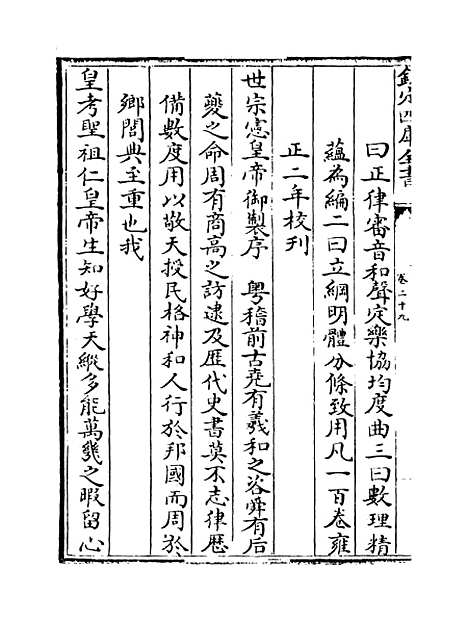 欽定四庫全書
卷二十九
曰正律審音和聲定樂協均度曲三曰數理精
蘊為編二曰立綱明體分條致用凡一百卷雍
正二年校刋
世宗憲皇帝御製序　粤稽前古堯有羲和之咨舜有后
夔之命周有商高之訪逮及歴代史書莫不志律厯
備數度用以敬天授民格神和人行於邦國而周於
鄉閭典至重也我
皇考聖祖仁皇帝生知好學天縱多能萬㡬之暇留心